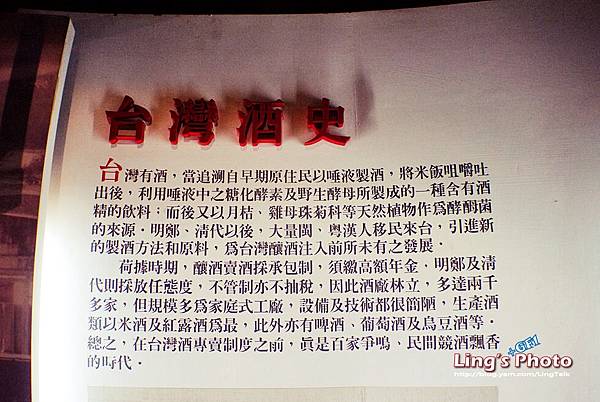 台灣酒史
台灣有酒，當追溯自早期原住民以唾液製酒，將米飯咀嚼吐
出後，利用唾液中之糖化酵素及野生酵母所製成的一種含有酒
精的飲料；而後又以月桔、雞母珠菊科等天然植物作為酵酮菌
的來源．明鄭、清代以後，大量閩、粵漢人移民來台，引進新
的製酒方法和原料，為台灣釀酒注入前所未有之發展．
荷據時期，釀酒賣酒採承包制，須繳高額年金．明鄭及清
代則採放任態度，不管制亦不抽稅，因此酒廠林立，多達兩千
多家，但規模多為家庭式工廠，設備及技術都很簡陋，生產酒
類以米酒及紅露酒為最，此外亦有啤酒、葡萄酒及烏豆酒等．
總之，在台灣酒專賣制度之前，真是百家爭鳴、民間競酒飄香
的時代．
+GF1
Ling's Photo
http://blog.yam.com/LingTalk